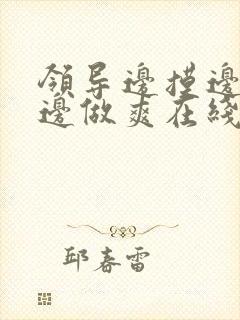 領导邊摸邊
邊做爽在綫
邱春雷